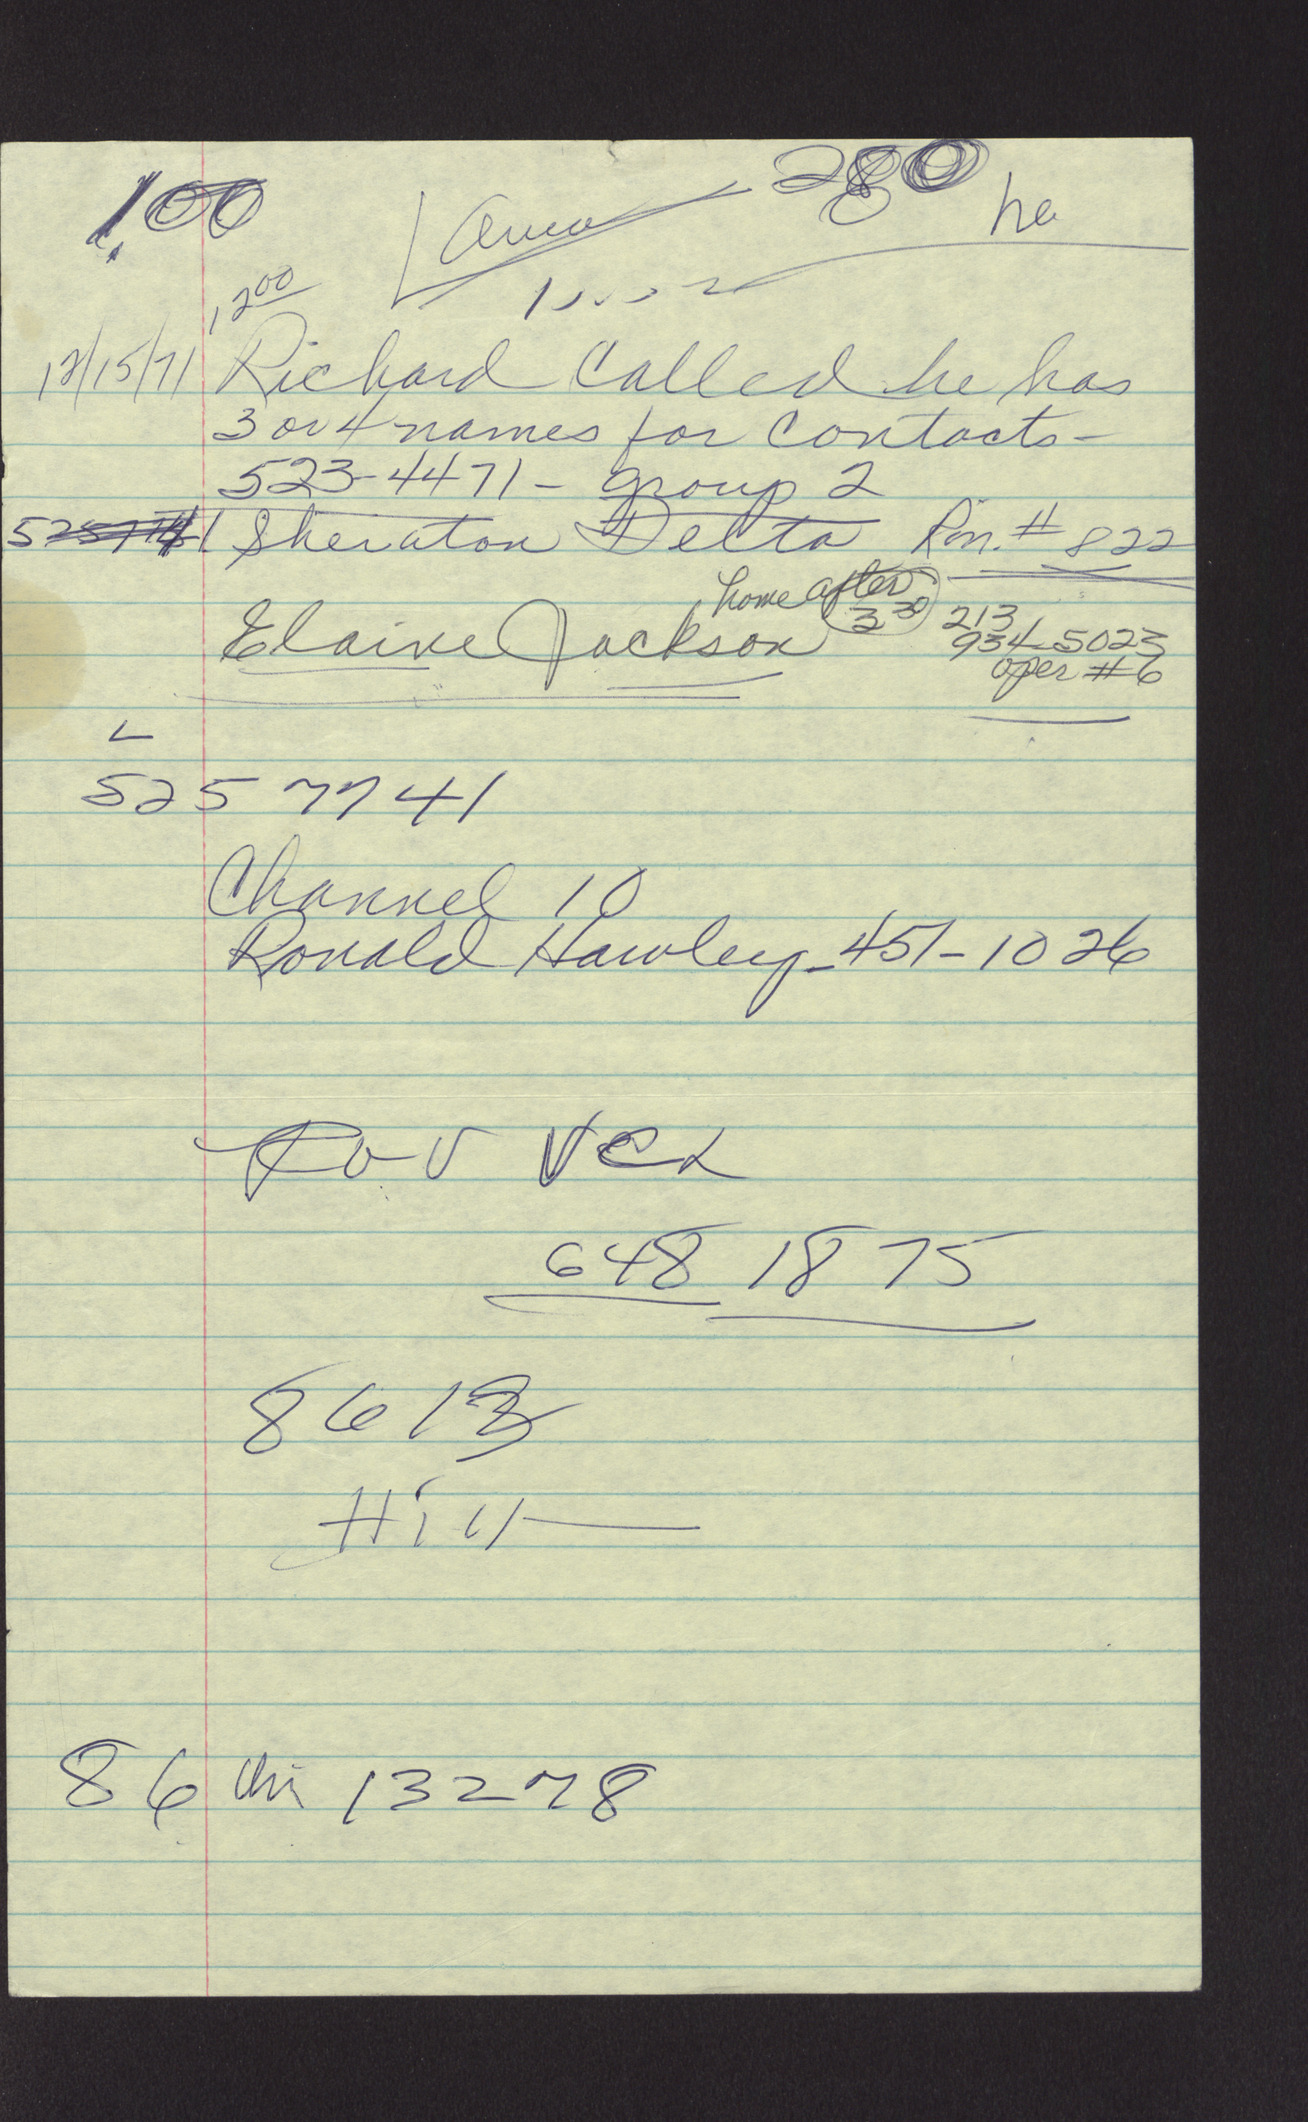 100
280
ha
1,200
12/15/71 Richard Called he has
3 or 4 names for Contacts -
523-4471 - group 2
Sheraton Delta Rm. # 822
home after 3 30
Elaine Jackson
213
934-5023
oper #6
525 7741
Channel 10
Ronald Hawley - 451-1026
648 1875
8613
Hill
86 13278